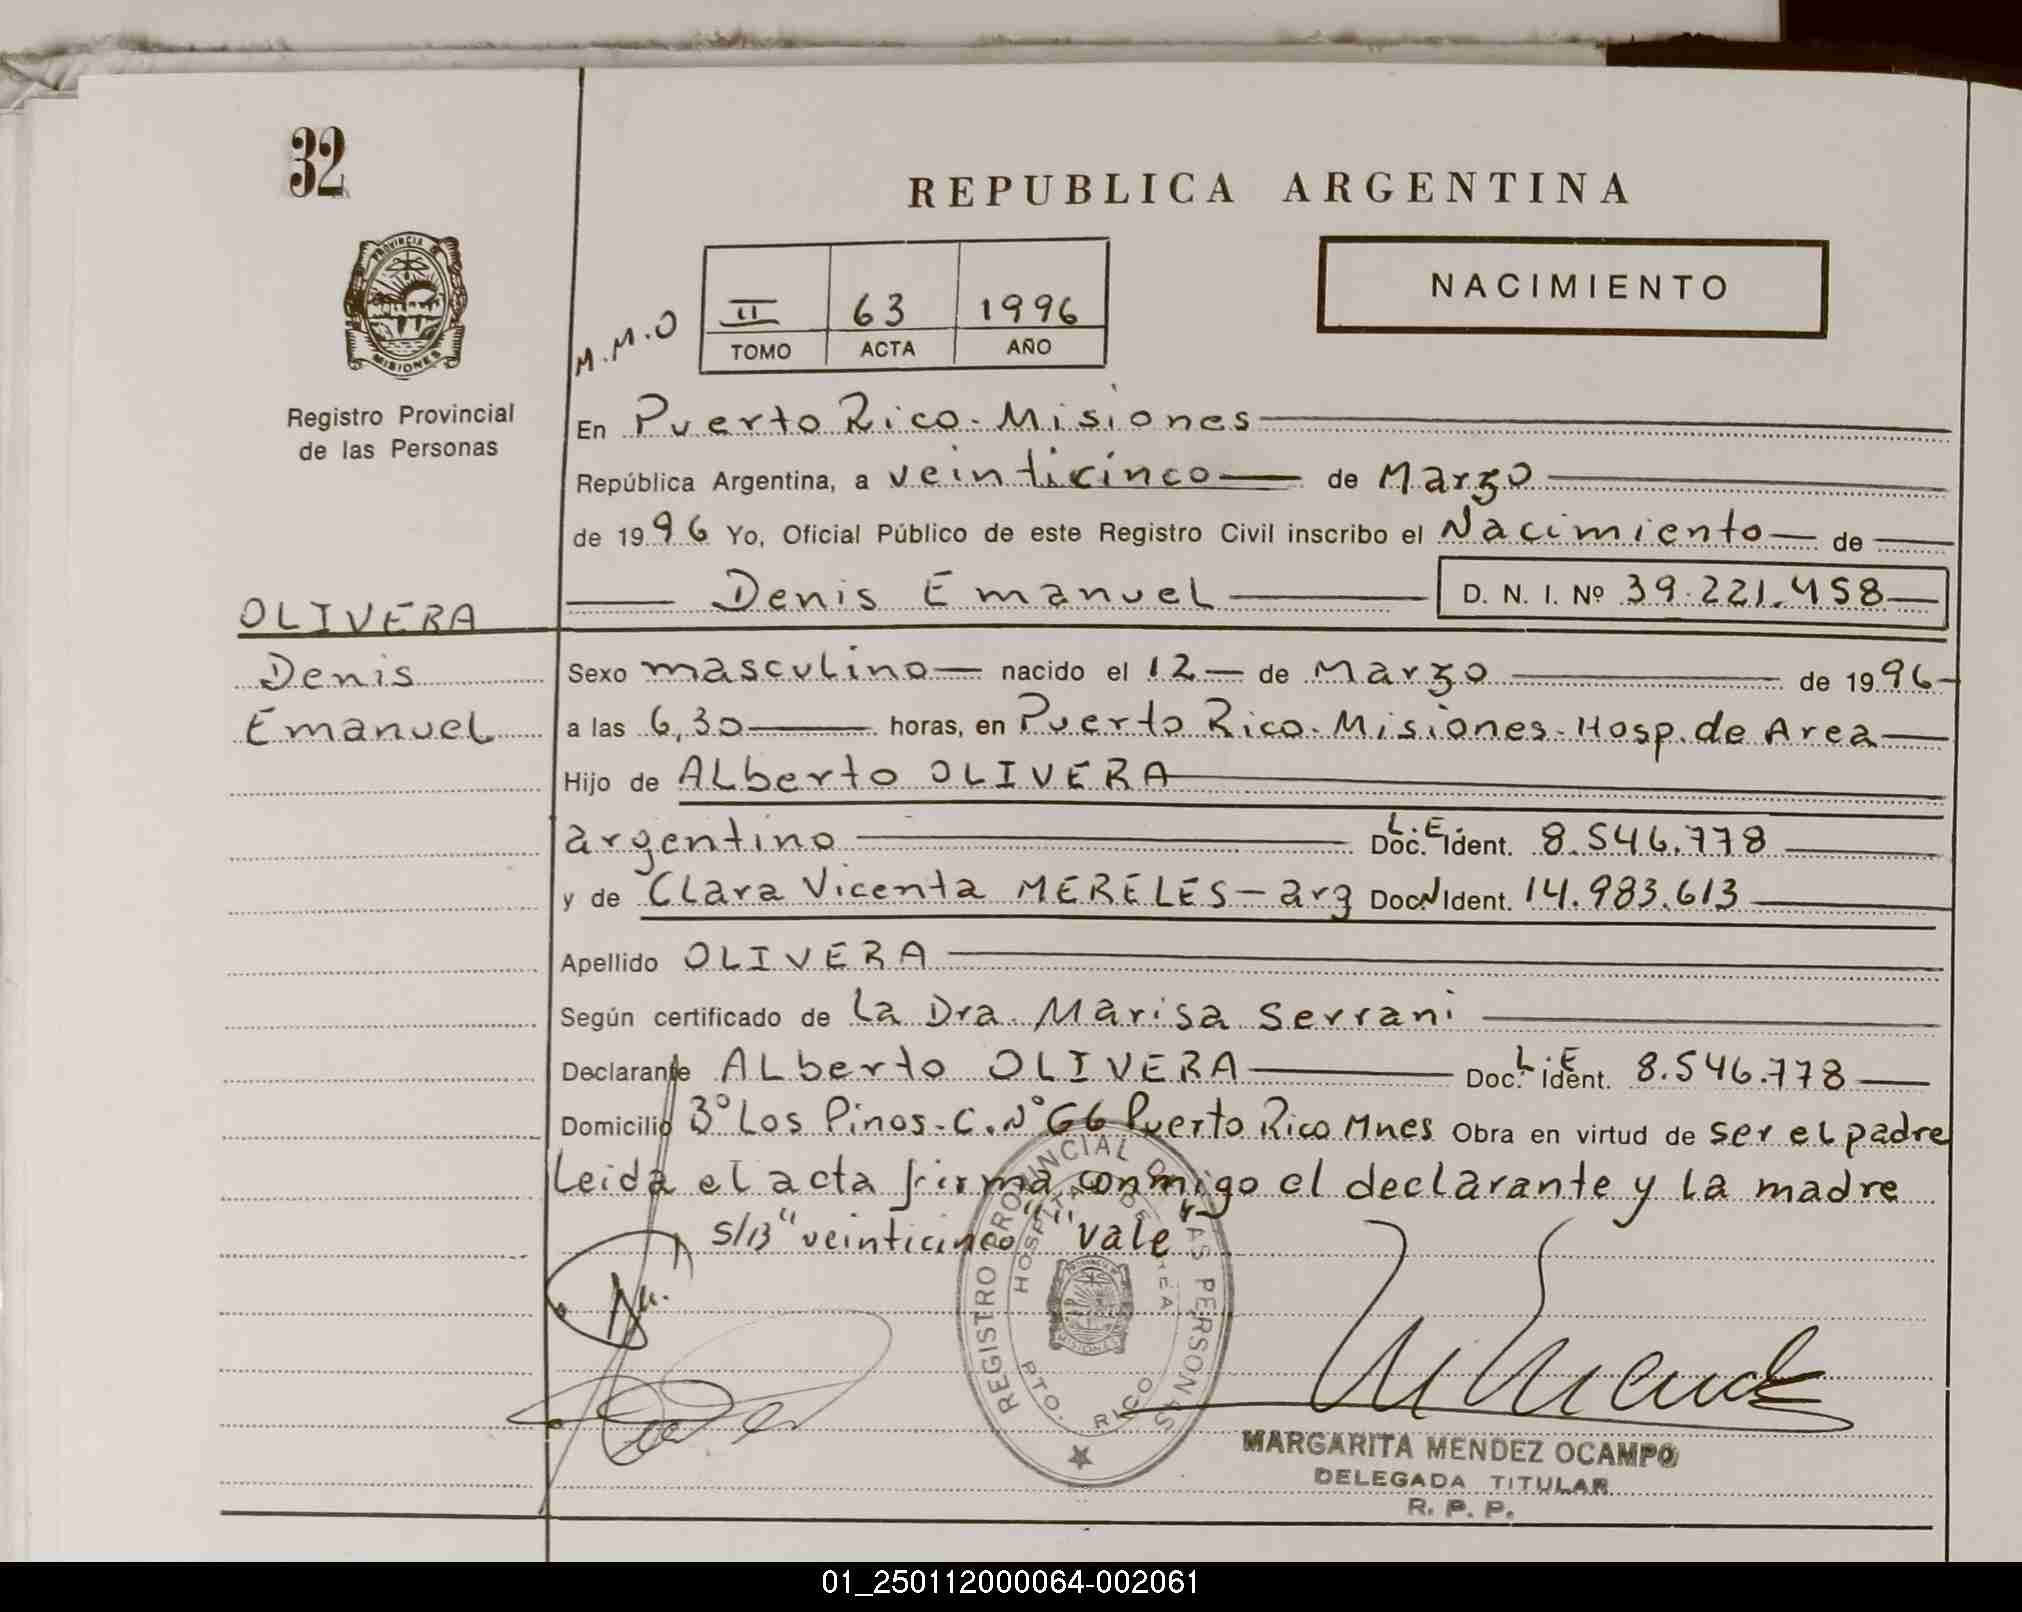 32
REPUBLICA ARGENTINA
PROVINCIA DE
MISIONES
Registro Provincial
de las Personas
M.M.O
II 63 1996
TOMO ACTA AÑO
NACIMIENTO
En Puerto Rico. Misiones
República Argentina, a veinticinco de Marzo
de 1996 Yo, Oficial Público de este Registro Civil inscribo el Nacimiento de
Denis Emanuel D. N. I. Nº 39.221.458
OLIVERA
Denis
Emanuel
Sexo masculino nacido el 12 de Marzo de 1996
a las 6,30 horas, en Puerto Rico. Misiones. Hosp. de Area
Hijo de ALberto OLIVERA
argentino Doc. L.E. Ident. 8.546.778
y de CLara Vicenta MERELES - arg Doc. Ident. 14.983.613
Apellido OLIVERA
Según certificado de La Dra. Marisa Serrani
Declarante ALberto OLIVERA Doc. L.E Ident. 8.546.778
Domicilio Bº Los Pinos - C. Nº 66 Puerto Rico Mnes Obra en virtud de ser el padre
Leida el acta firma conmigo el declarante y la madre
S/B "veinticinco" "vale"
REGISTRO PROVINCIAL DE LAS PERSONAS
HOSPITAL DE AREA
MISIONES
PTO. RICO
MARGARITA MENDEZ OCAMPO
DELEGADA TITULAR
R. P. P.
01_250112000064-002061